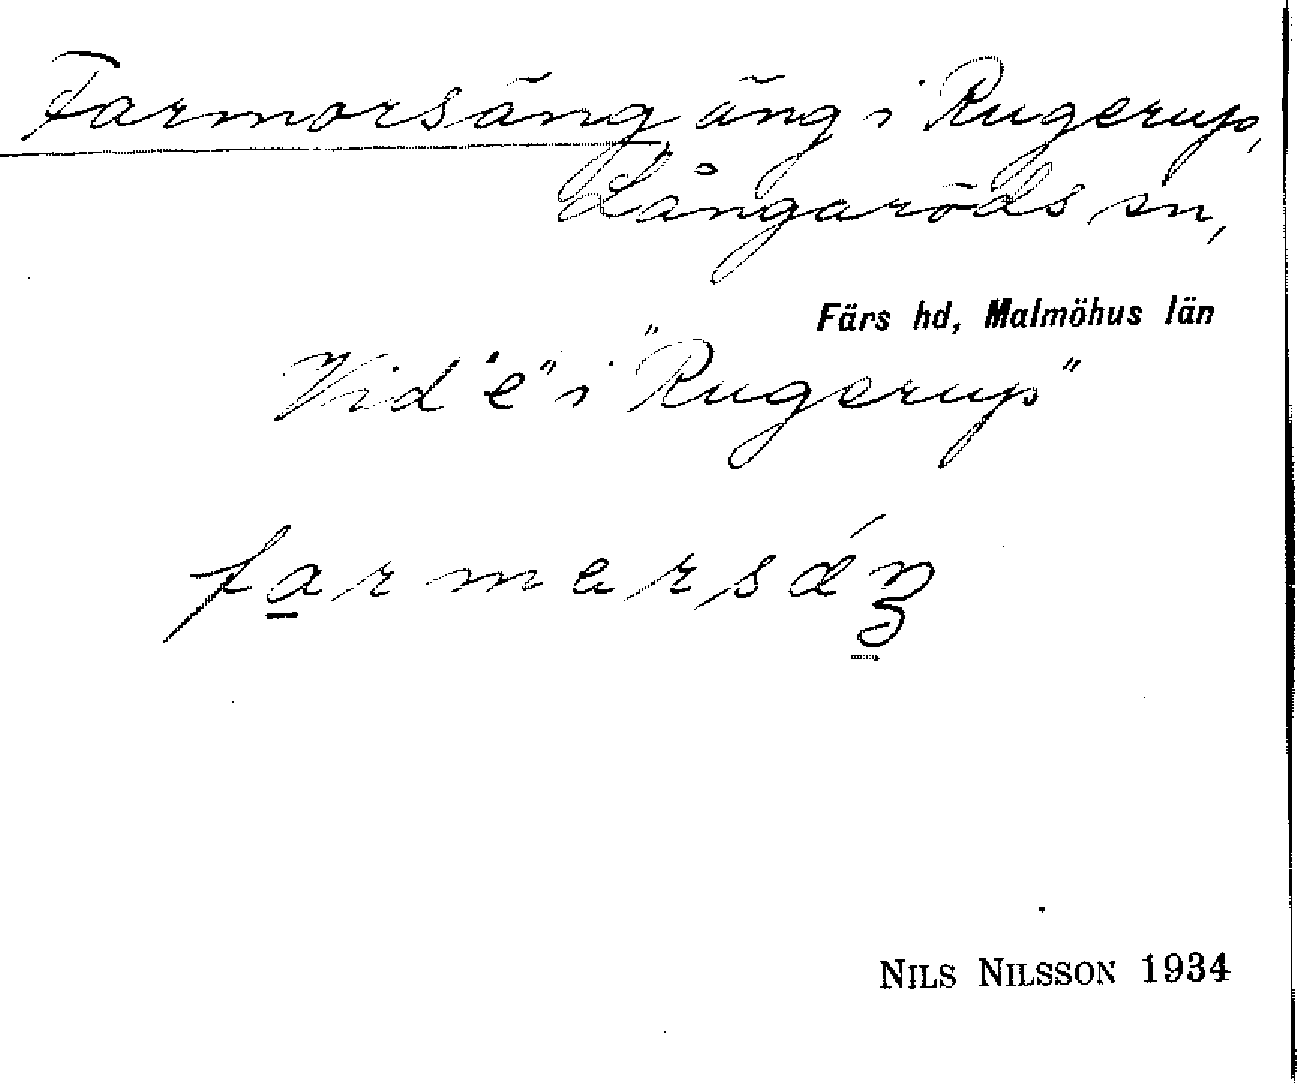 Farmorsäng äng i Rugerup,
Långaröds sn,
Färs hd, Malmöhus län
Vid "e" i "Rugerup"
farmersǽŋ
NILS NILSSON 1934